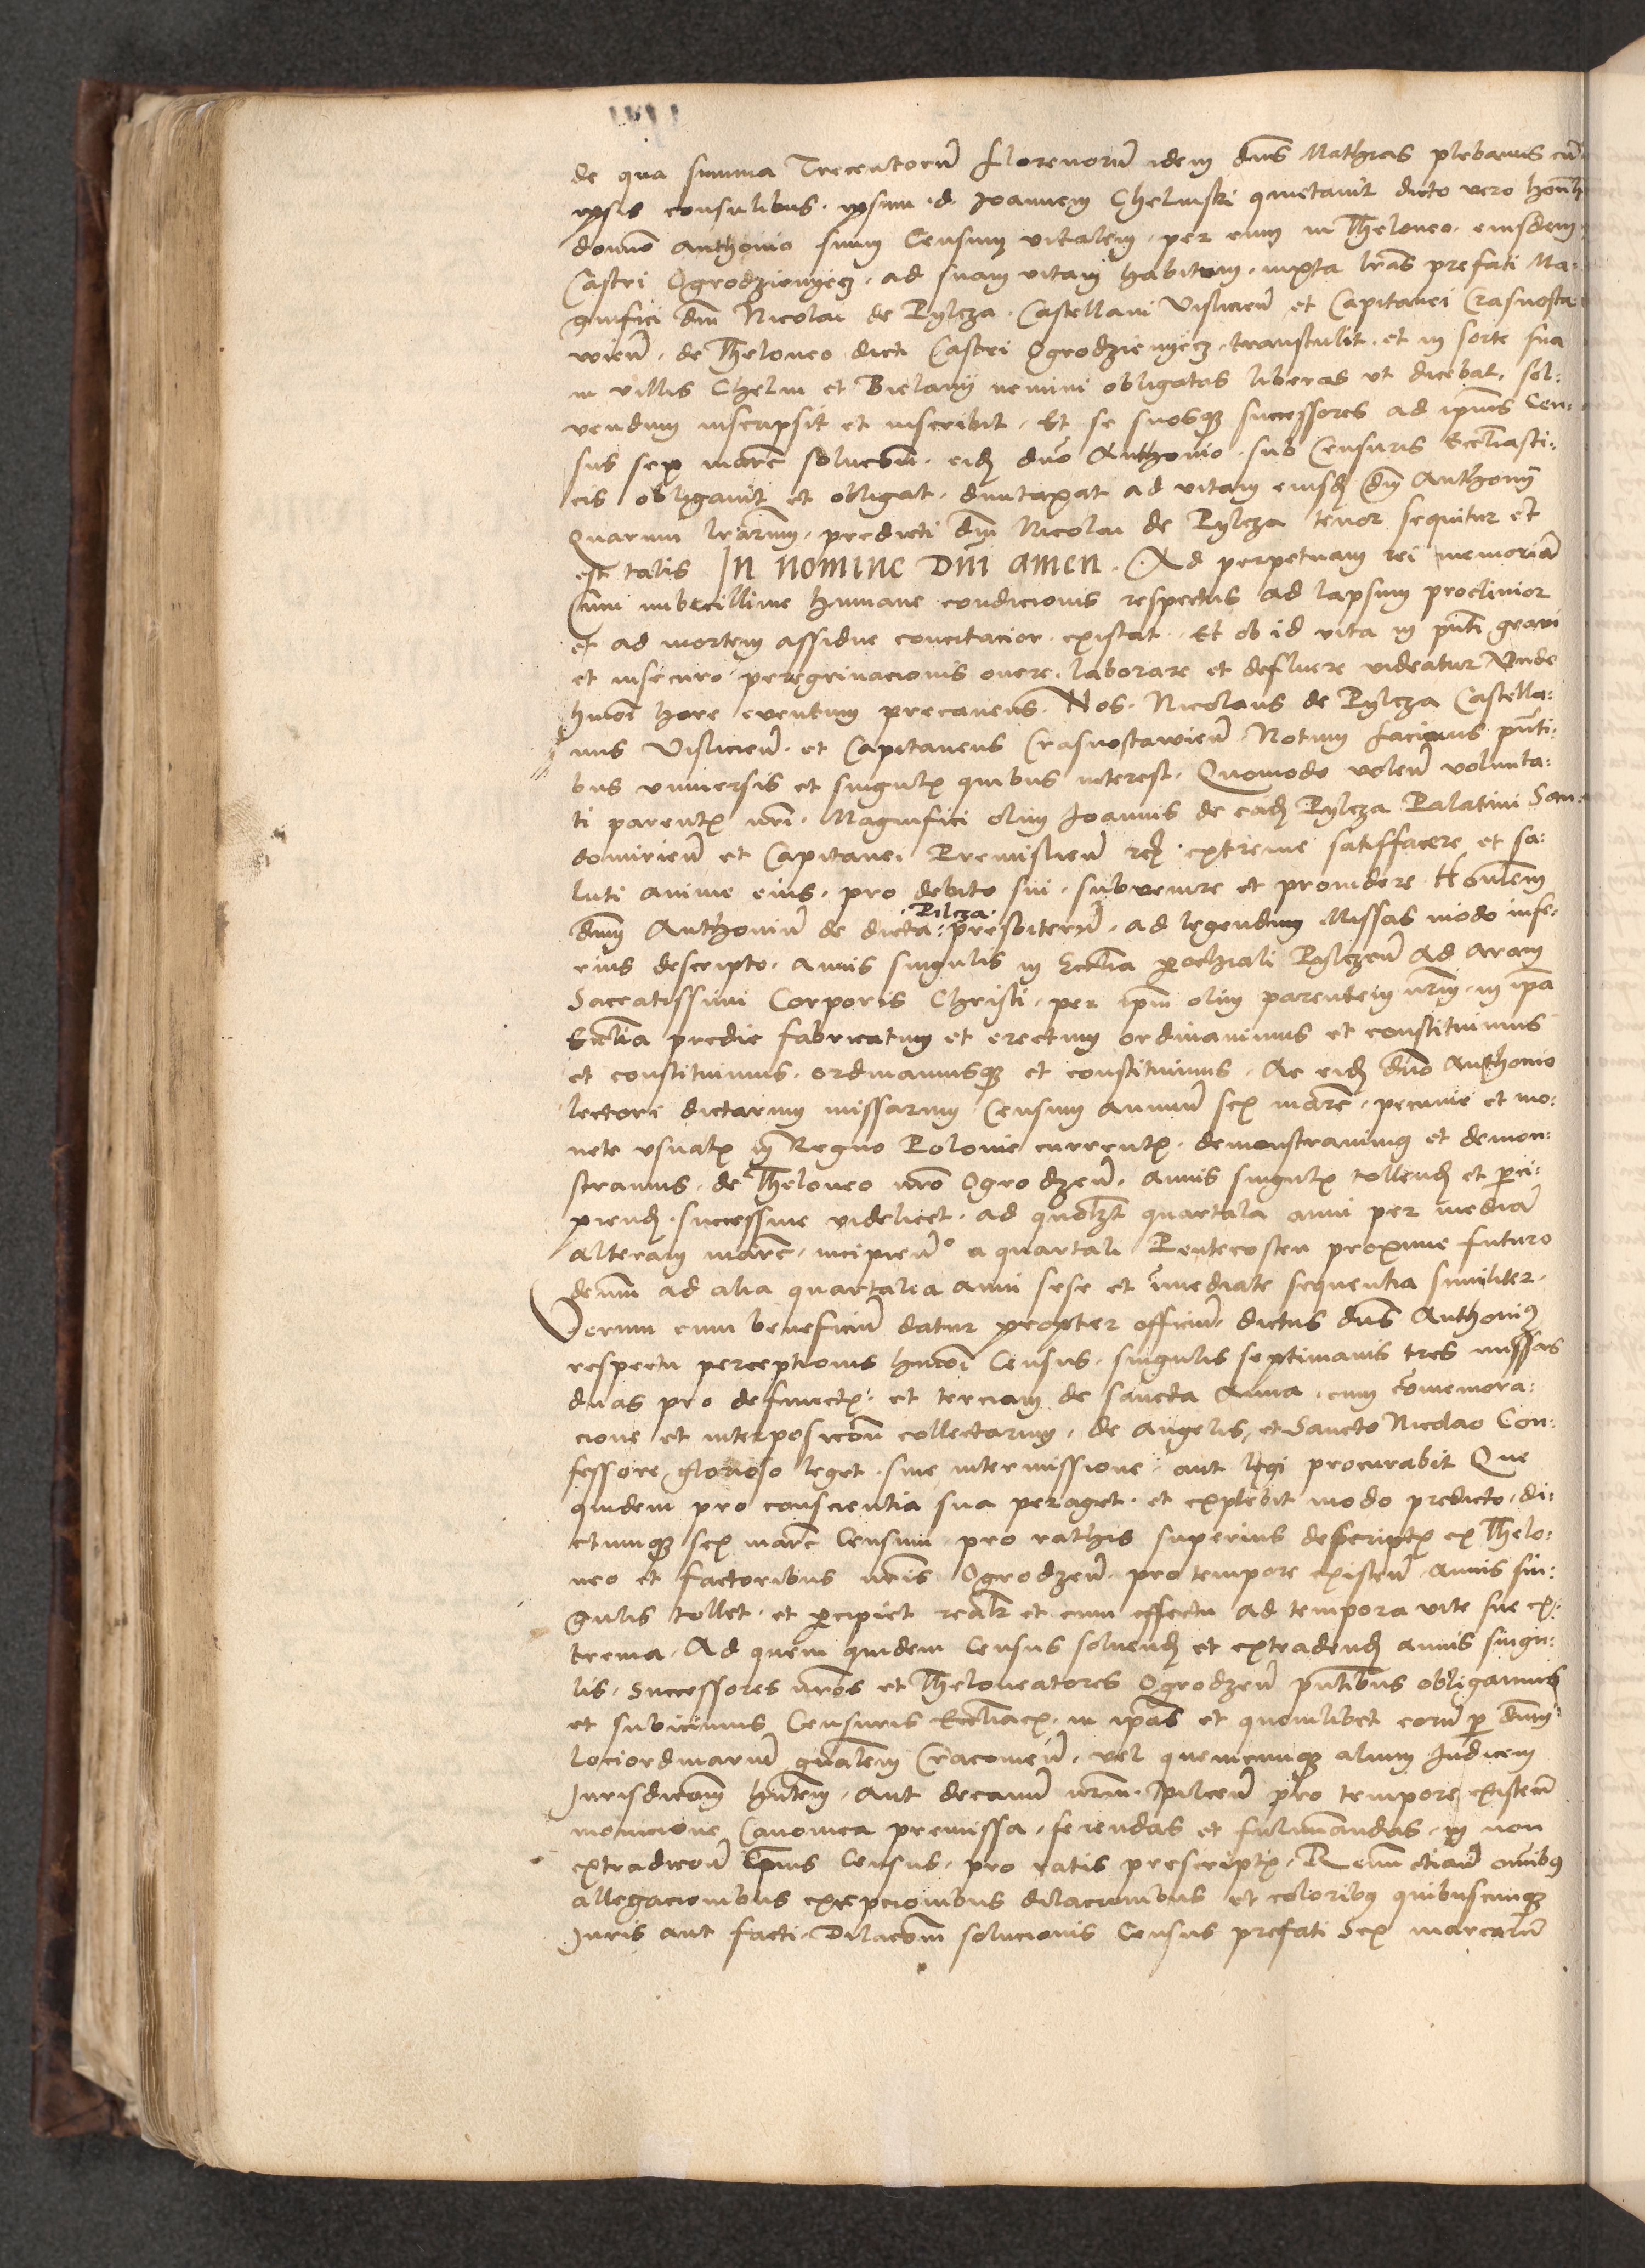 de qua summa Trecentorũ florenorũ idem dñs Mathias plebanus cũ
ipsis consulibus. ipsum d. Joannem Chelmski quietavit dicto vero honbli
domino Anthonio suum Censum vitalem, per eum in Theloneo eiusdem
Castri Ogrodzienyecz, ad suam vitam habitum, iuxta lrãs prefati Ma-
gnifici dñi Nicolai de Pylcza Castellani Vislicieñ et Capitanei Crasnosta
wieñ, de Theloneo dicti Castri Ogrodzienyecz, transtulit, et in sorte sua
in villis Chelm et Bielany nemini obligatas liberas ut dicebat, sol:
vendum inscripsit et inscribit. Et se suosqȝ successores ad ipius Cen:
sus sex marc̃ solucoñ. eidȝ dño Anthonio sub Censuris Eccliasti:
cis obligavit et obligat, duntaxat ad vitam eiusdȝ dñi Anthonij
Quarum lrarum, predicti dñi Nicolai de Pylcza tenor sequitur et
est talis In nomine Dñi amen. Ad perpetuam rei memoriã
Cum imbecillime humane condicionis respectus ad lapsum proclivior
et ad mortem assidue concitacior existat. Et ob id vita in pñti gravi
et insecuro peregrinacionis onere laborare et defluere videatur Unde
hmõi hore eventum precavens. Nos Nicolaus de Pylcza Castella:
nus Vislicieñ. et Capitaneus Crasnostawieñ Notum facimus pñti:
bus universis et singulis quibus interest. Quomodo voleñ volunta:
ti parentis nrĩ. Magnifici olim Joannis de eadȝ Pylcza Palatini San-
domirieñ et Capitanei Premislieñ rc̃ extreme satisfacere et sa:
luti anime eius, pro debito sui, subvenire et providere Honblem
.Pilcza.
dñm Anthoniũ de dicta: presbiterũ, ad legendum Missas modo infe-
rius descripto, annis singulis in Ecclia pochiali Pylczeñ ad aram
Sacratissimi Corporis Christi, per ipm olim parentem nrm, in ipa
Ecclia predic̃ fabricatum et erectum ordinavimus et constituimus
et constituimus, ordinamusqȝ et constituimus. Ac eidȝ dño Anthonio
lectori dictarum missarum Censum annuũ sex marc̃, pecunie et mo:
nete usualis in Regno Polonie currentis, demonstravimus et demon:
stramus, de Theloneo nro Ogrodzeñ. annis singulis tollendȝ et pci:
piendȝ, successive videlicet, ad quodlȝt quartale anni per mediã
alteram marc̃, incipieñ° a quartali Pentecosten proxime futuro
deinm ad alia quartalia anni sese et ĩmediate sequentia similiter.
Verum cum beneficiũ datur propter officiũ, dictus dñs Anthoniꝰ
respectu perceptionis hmõi Census, singulis septimanis tres missas
duas pro defunctis. et terciam de sancta Anna, cum cõmemora:
cione et interposicõñ collectarum, de Angelis, et Sancto Nicolao Con:
fessore glorioso leget, sine intermissione, aut legi procurabit Que
quidem pro conscientia sua peraget, et explebit modo predicto, di:
ctumqȝ sex marc̃ Censum pro rathis superius descriptis ex Thelo:
neo et factoribus nris Ogrodzeñ pro tempore existeñ annis sin:
gulis tollet, et pcipiet realr et cum effectu ad tempora vite sue ex:
trema. Ad quem quidem Census solvendȝ et extradendȝ annis singu:
lis, Successores nros et Theloneatores Ogrodzeñ pñtibus obligamus
et subicimus Censuris Ecclacis. in ipas et quemlibet eorũ p dñm
lociordinariũ gñalem Cracovieñ, vel quemcumqȝ alium Judicem
Jurisdicõm hñtem, aut decanũ nrm Pilceñ pro tempore existeñ
monicione Canonica premissa, ferendas et fulminandas, in non
extradicõñ ipius Census, pro ratis prescriptis. Renũctiañ omibꝰ
allegacionibus excepcionibus dilacionibus et coloribꝰ quibuscumqȝ
Juris aut facti. Dilacõm solucionis Census prefati Sex marcarũ